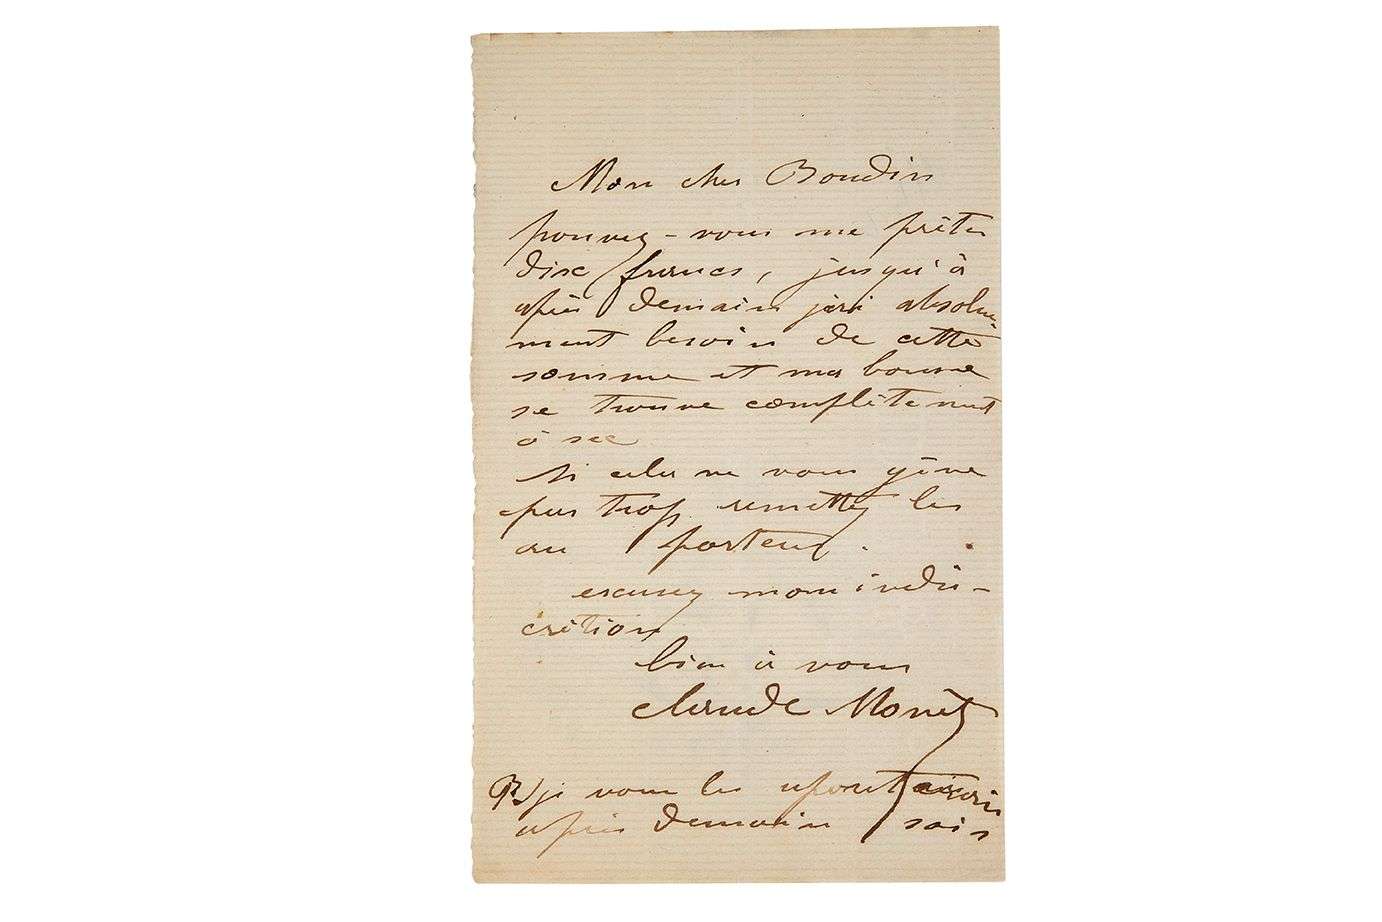 Mon cher Boudin
pouvez-vous me prêter
dix francs, jusqu'à
après demain j'ai absolu-
ment besoin de cette
somme et ma bourse
se trouve complètement
à sec
si cela ne vous gêne
pas trop remettez les
au porteur.
excusez mon indis-
crétion
bien à vous
Claude Monet
je vous les
après demain soir